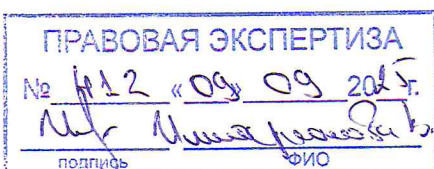 ПРАВОВАЯ ЭКСПЕРТИЗА
№ 412 «09» 09 2025г.
подпись ФИО